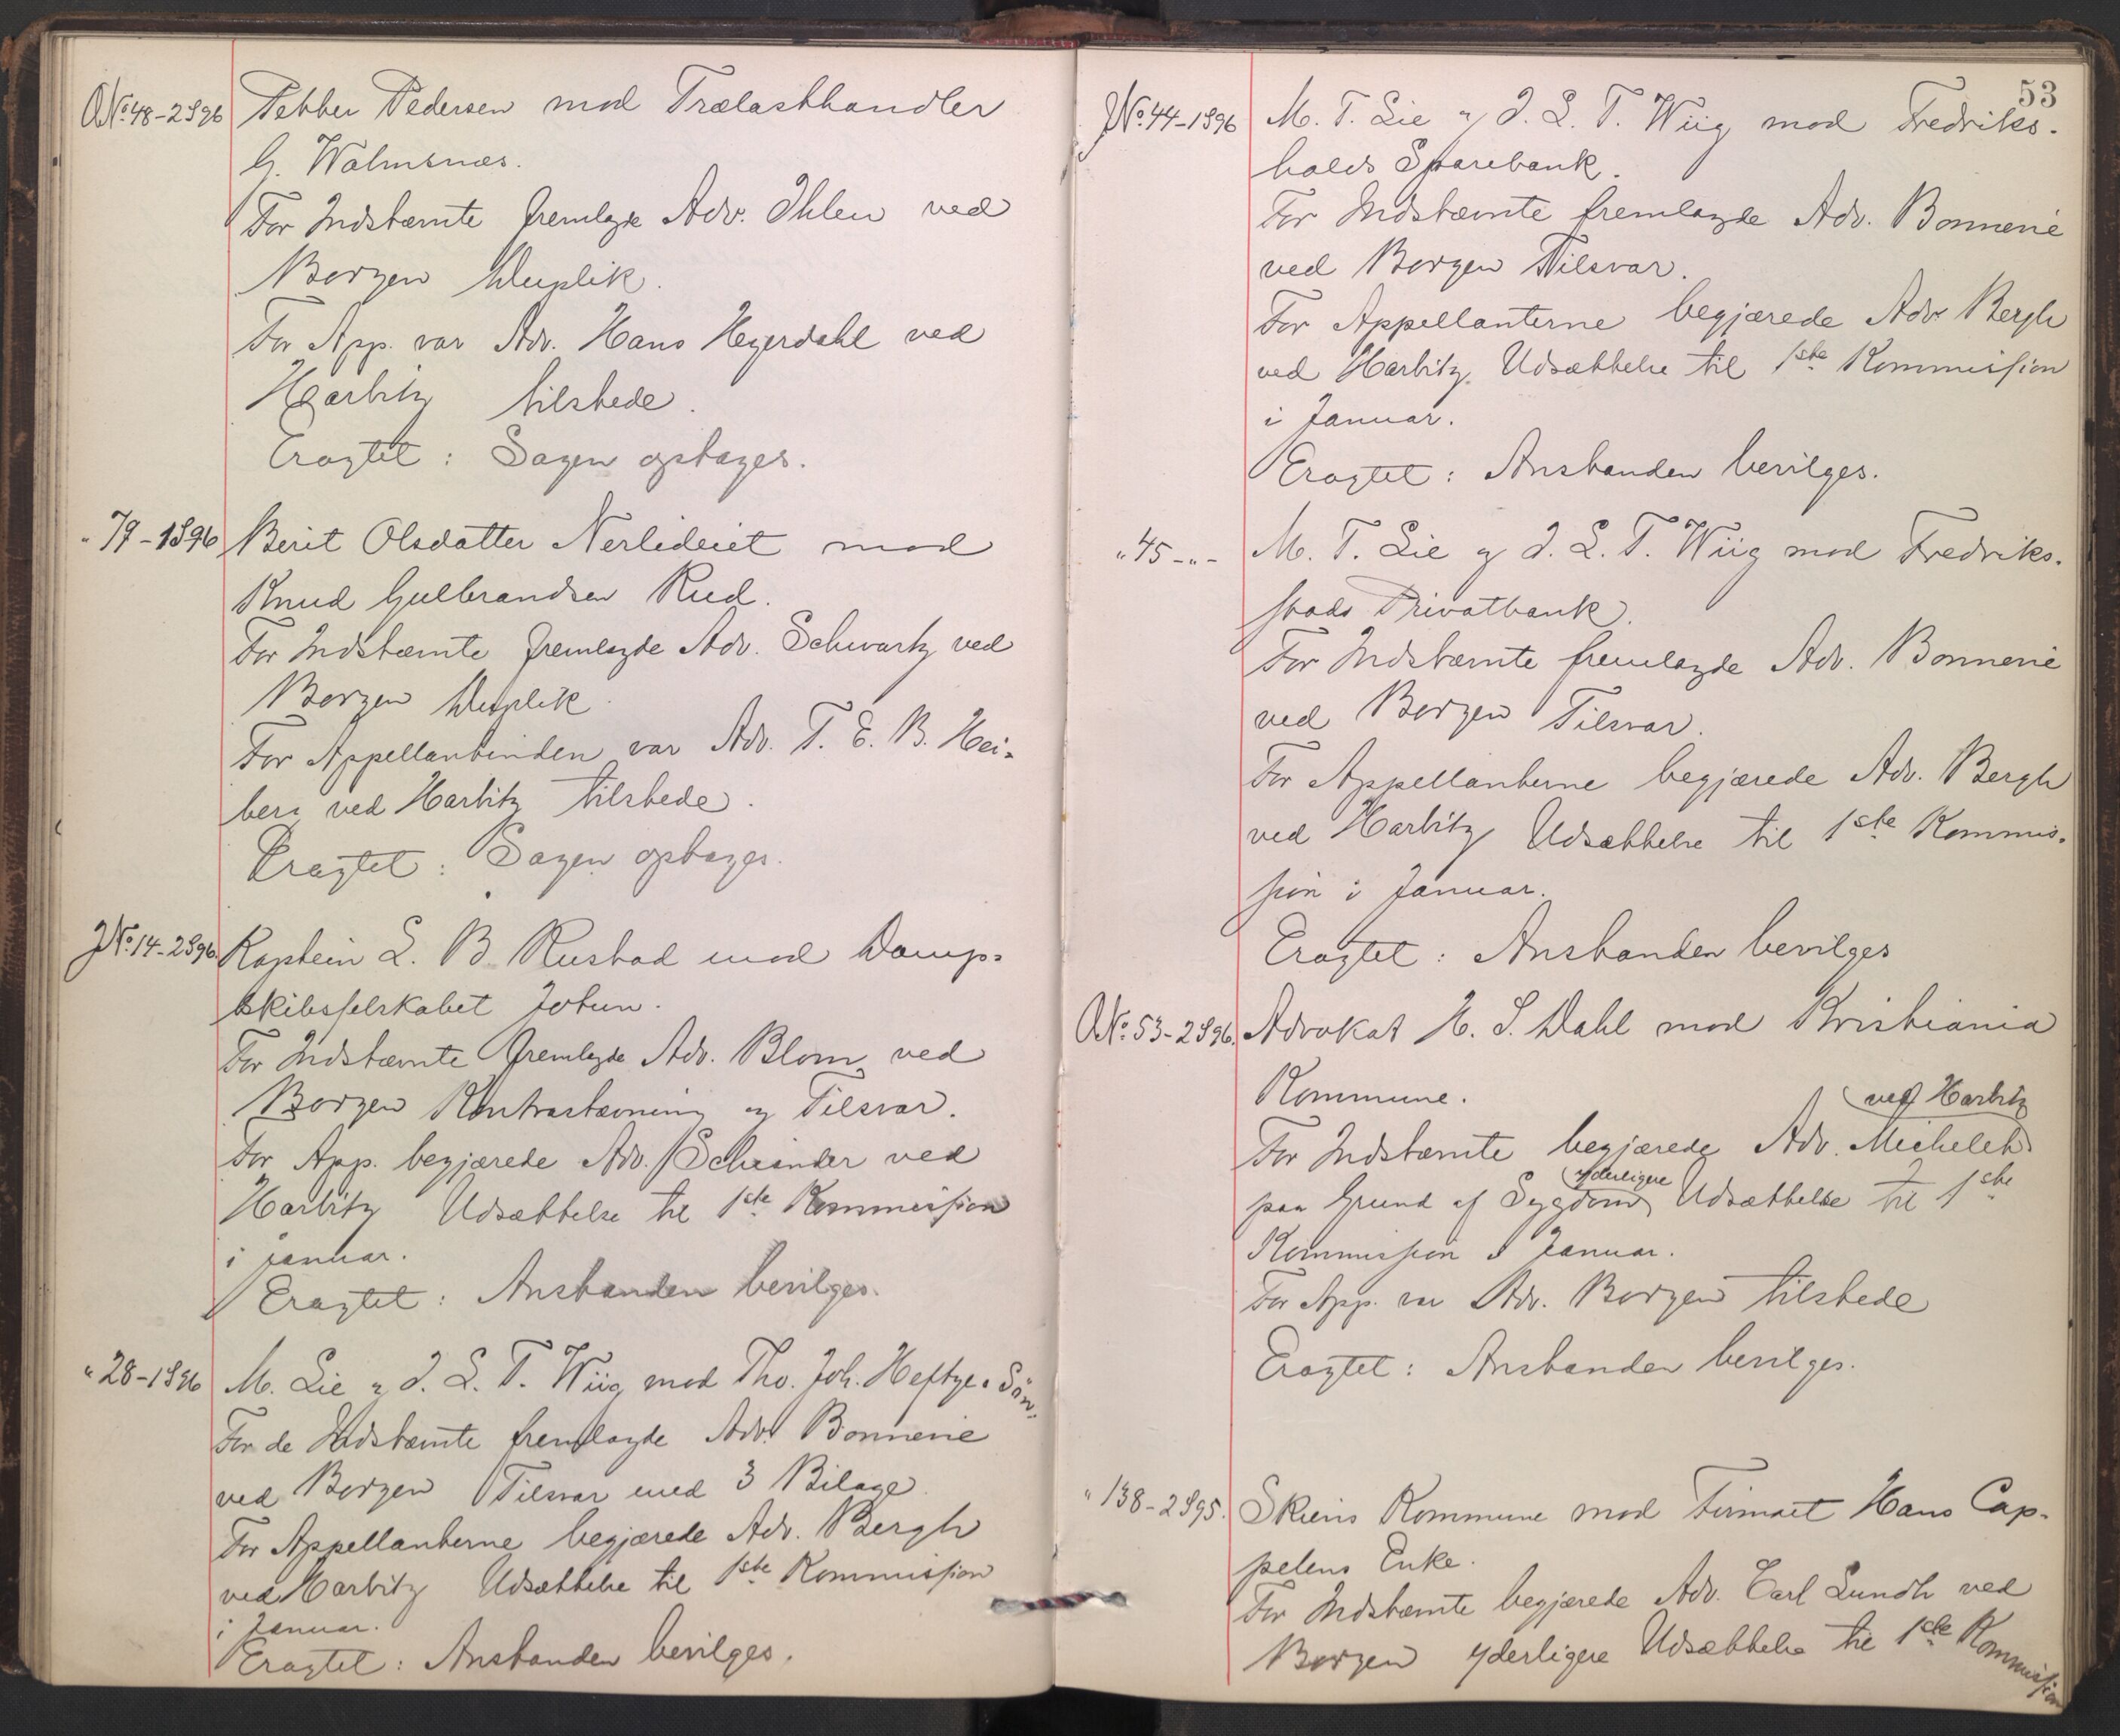 O No. 48-2 896 Petter Pedersen mod Trælasthandler
G. Walmsnæs.
For Indstævnte fremlagde Adv. Ihlen ved
Borgen Duplik.
For App. var Adv. Hans Heyerdahl ved
Harbitz tilstede.
Eragtet: Sagen optages.
" 79-1896 Berit Olsdatter Nerliderert mod
Knud Gulbrandsen Rud.
For Indstævnte fremlagde Adv. Schwartz ved
Borgen Duplik
For Appellantinden var Adv. T. E. B. Hei-
berg ved Harbitz tilstede.
Eragtet: Sagen optages.
J No. 14-2896. Kaptein L. B. Rustad mod Damp-
skibsselskabet Jotun.
For Indstævnte fremlagde Adv. Blom ved
Borgen Kontrastævning og Tilsvar.
For App. begjærede Adv. Scheander ved
Harbitz Udsættelse til 1ste Kommission
i januar.
Eragtet: Anstanden bevilges.
" 28-1896 M. Lie og J. L. T. Wiig mod Tho. Joh. Heftye & Søn.
For de Indstævnte fremlagde Adv. Bonnevie
ved Borgen Tilsvar med 3 Bilage.
For Appellanterne begjærede Adv. Bergh
ved Harbitz Udsættelse til 1ste Kommission
i Januar.
Eragtet: Anstanden bevilges.
53
J No. 44-1896 M. T. Lie og J. L. T. Wiig mod Fredriks-
halds Sparebank.
For Indstævnte fremlagde Adv. Bonnevie
ved Borgen Tilsvar.
For Appellanterne begjærede Adv Bergh
ved Harbitz Udsættelse til 1ste Kommission
i Januar.
Eragtet: Anstanden bevilges.
" 45 - " - M. T. Lie og J. L. T. Wiig mod Fredriks-
stads Privatbank.
For Indstævnte fremlagde Adv. Bonnevie
ved Borgen Tilsvar.
For Appellanterne begjærede Adv. Bergh
ved Harbitz Udsættelse til 1ste Kommis-
sion i Januar.
Eragtet: Anstanden bevilges
O No. 53-2896. Advokat H. S. Dahl mod Kristiania
Kommune.
ved Harbitz
For Indstævnte begjærede Adv. Michelet
yderligere
paa Grund af Sygdom Udsættelse til 1ste
Kommission i Januar.
For App. var Adv. Borgen tilstede
Eragtet: Anstanden bevilges.
" 138-2895. Skiens Kommune mod Firmaet Hans Cap-
pelens Enke.
For Indstævnte begjærede Adv. Carl Lundh ved
Borgen yderligere Udsættelse til 1ste Kommission